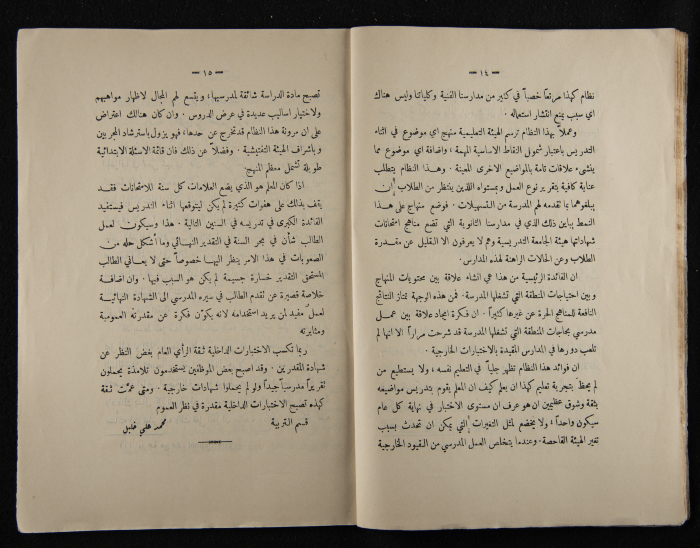 — ١٤ —
نظام كهذا مرتعاً خصباً في كثير من مدارسنا الفنية وكلياتنا وليس هناك
اي سبب يمنع انتشار استعماله .
وعملاً بهذا النظام ترسم الهيئة التعليمية منهج اي موضوع في اثناء
التدريس باعتبار شمولي النقاط الاساسية المهمة ، واضافة اي موضوع مما
ينشىء علاقات تامة بالمواضيع الاخرى المعينة . وهـذا النظام يتطلب
عناية كافية بتقرير نوع العمل وبمستواه اللذين ينتظر من الطلاب أن
يبلغوهما بما تقدمه لهم المدرسة من التسهيلات . فوضع منهاج على هـذا
النمط يباين ذلك الذي في مدارسنا الثانوية التي تضع مناهج امتحانات
شهاداتها هيئة الجامعة التدريسية وهم لا يعرفون الا القليل عن مقـدرة
الطلاب وعن الحالات الراهنة لهذه المدارس .
ان الفائدة الرئيسية من هذا هي انشاء علاقة بين محتويات المنهاج
وبين احتياجات المنطقة التي تشغلها المدرسة . فمن هذه الوجهة تمتاز النتائج
النافعة للمناهج الحرة عن غيرها كثيراً . ان فكرة ايجاد علاقة بين عمـل
مدرسي بحاجات المنطقة التي تشغلها المدرسة قد شرحت مراراً الا انها لم
تلعب دورها في المدارس المقيدة بالاختبارات الخارجية .
ان فوائد هذا النظام تظهر جلياً في التعليم نفسه ، ولا يستطيع من
لم يحظ بتجربة تعليم كهذا ان يعلم كيف ان المعلم يقوم بتدريس مواضيعه
بثقة وشوق عظيمين ان هو عرف ان مستوى الاختبار في نهاية كل عام
سيكون واحداً ، ولا يخضع لمثل التغيرات التي يمكن ان تحدث بسبب
تغير الهيئة الفاحصة . وعندما يتخلص العمل المدرسي من القيود الخارجية
— ١٥ —
تصبح مادة الدراسة شائقة لمدرسيها ، ويتسع لهم المجال لاظهار مواهبهم
ولاختيار اساليب عديدة في عرض الدروس . وان كان هنالك اعتراض
على ان مرونة هذا النظام قد تخرج عن حدها ، فهو يزول باسترشاد المجربين
وباشراف الهيئة التفتيشية . وفضلاً عن ذلك فان قائمة الاسئلة الابتدائية
طويلة تشمل معظم المنهج .
اذا كان المعلم هو الذي يضع العلامات كل سنة للامتحانات فقـد
يقف بذلك على هفوات كثيرة لم يكن ليتوقعها اثناء التدريس فيستفيد
الفائدة الكبرى في تدريسه في السنين التالية . هذا وسيكون لعمل
الطالب شأن في بحر السنة في التقدير النهـائي وما أشكل حله من
الصعوبات في هذا الامر ينظر اليهـا خصوصاً حتى لا يعـاني الطالب
المستحق التقدير خسارة جسيمة لم يكن هو السبب فيها . وان اضافـة
خلاصة قصيرة عن تقدم الطالب في سيره المدرسي الى الشهادة النهائيـة
لعمل مفيد لمن يريد استخدامه لانه يكوّن فكرة عن مقدرته العمومية
ومثابرته
ربما تكسب الاختبارات الداخلية ثـقة الرأي العام بغض النظر عن
شهادة المقدرين . وقد اصبح بعض الموظفين يستخدمون تلامذة يحملون
تقريراً مدرسياً جيداً ولو لم يحملوا شهادات خارجية . ومتى عمّت ثـقة
كهذه تصبح الاختبارات الداخلية مقدرة في نظر العموم
قسم التربية
محمد علي خليل